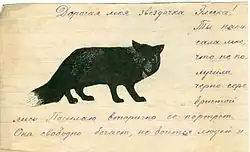 Дорогая моя звездочка Киска!
Ты пи
сала мне,
что не по
лучила
черно-сере
бристой
лисы. Посылаю вторично ее портрет.
Она свободно бегает, не боится людей и